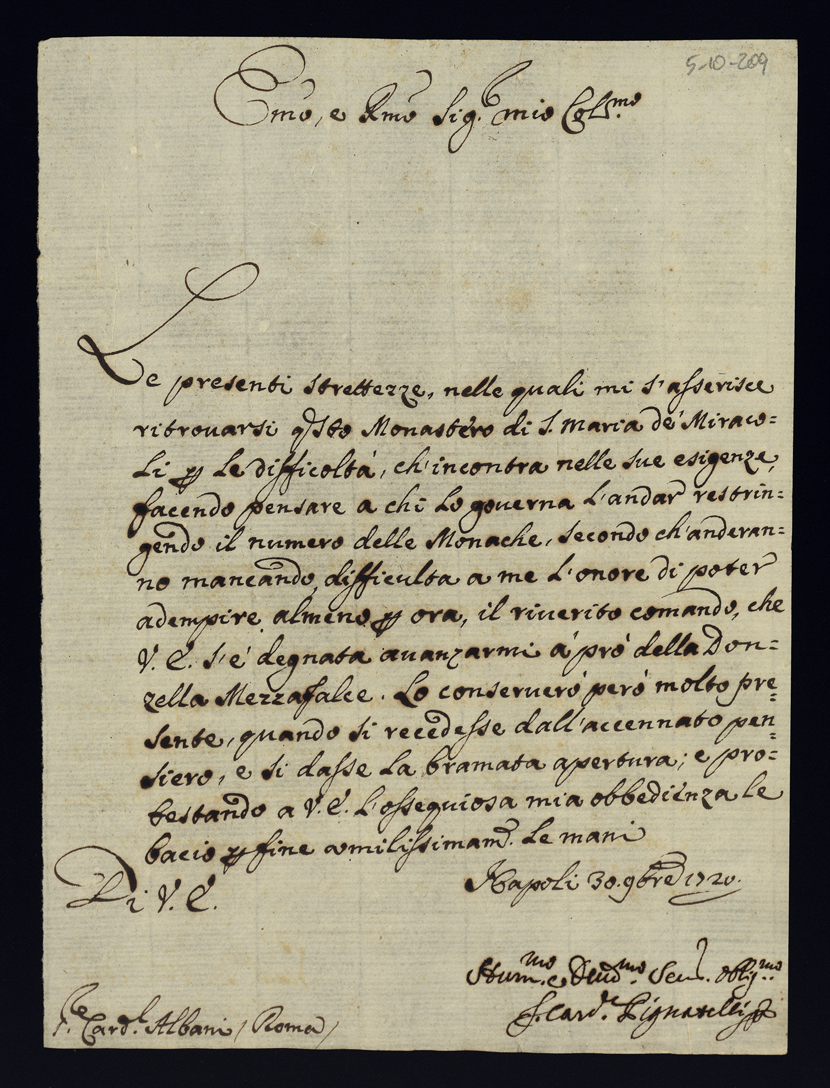 5-10-209
Emõ, e Rmõ Sig.r mio Col.mo
Le presenti strettezze, nelle quali mi s'asserisce
ritrovarsi qsto Monastéro di S. Maria de' Miraco=
li p le difficoltà, ch'incontra nelle sue esigenze,
facendo pensare a chi lo governa l'andar restrin=
gendo il numero delle Monache, secondo ch'anderan=
no mancando, difficulta a me l'onore di poter
adempire almeno p ora, il riverito comando, che
V. E. s'è degnata avanzarmi à prò della Don=
zella Mezzafalce. Lo conserverò però molto pre=
sente, quando si recedesse dall'accennato pen=
siero, e si dasse la bramata apertura; e pro=
testando a V. E. l'ossequiosa mia obbedienza le
bacio p fine umilissimam.e le mani
Napoli 30. 9bre 1720.
Di V. E.
Hum.mo e Devd.mo Ser. oblig.mo
F. Card.l Pignatelli
S.r Card.l Albani / Roma /